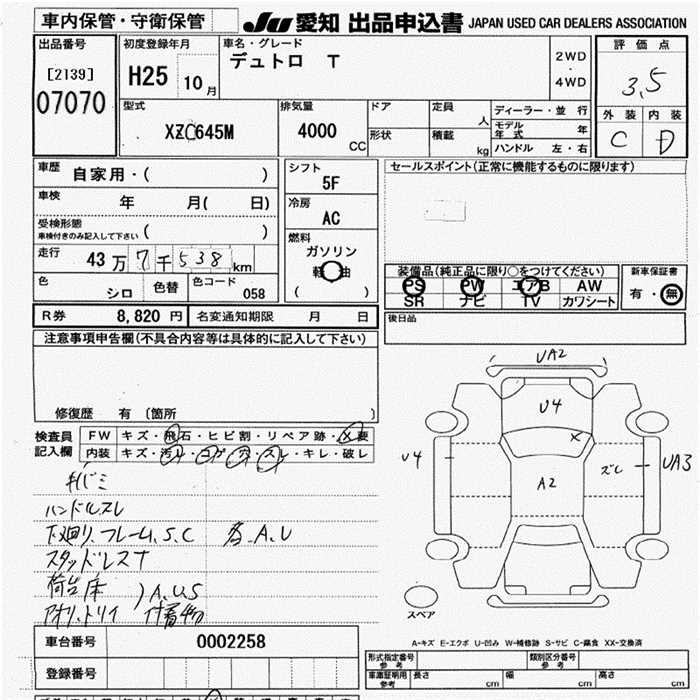 車内保管・守衛保管
JU 愛知 出品申込書 JAPAN USED CAR DEALERS ASSOCIATION
出品番号
[2139]
07070
初度登録年月
H25 10月
車名・グレード
デュトロ T
2WD
・
4WD
評価点
3.5
外装 内装
C D
型式
XZC645M
排気量
4000 CC
ドア
形状
定員 人
積載 kg
ディーラー・並行
モデル年式 年
ハンドル 左・右
車歴
自家用・( )
車検
年 月( 日)
受検形態
車検付きのみ記入して下さい ( )
走行
43万7千538km
色
シロ
色替
色コード
058
シフト
5F
冷房
AC
燃料
ガソリン
軽油
( )
セールスポイント(正常に機能するものに限ります)
装備品(純正品に限り○をつけてください)
PS PW エアB AW
SR ナビ TV カワシート
新車保証書
有・無
後日品
R券 8,820円 名変通知期限 月 日
注意事項申告欄(不具合内容等は具体的に記入して下さい)
修復歴 有 〔箇所 〕
検査員
記入欄
FW キズ・飛石・ヒビ割・リペア跡・X要
内装 キズ・汚レ・コゲ・穴・スレ・キレ・破レ
キバミ
ハンドルスレ
下廻リ.フレーム.S.C 各.A.U
スタッドレスT
荷台床 ) A.U.S
アオリ.トリイ 付着物
UA2
U4
X
U4
A2
ズレ
UA3
スペア
A-キズ E-エクボ U-凹み W-補修跡 S-サビ C-腐食 XX-交換済
車台番号 0002258
登録番号
形式指定番号
参考
類別区分番号
参考
車庫証明用
参考
長さ cm 幅 cm 高さ cm